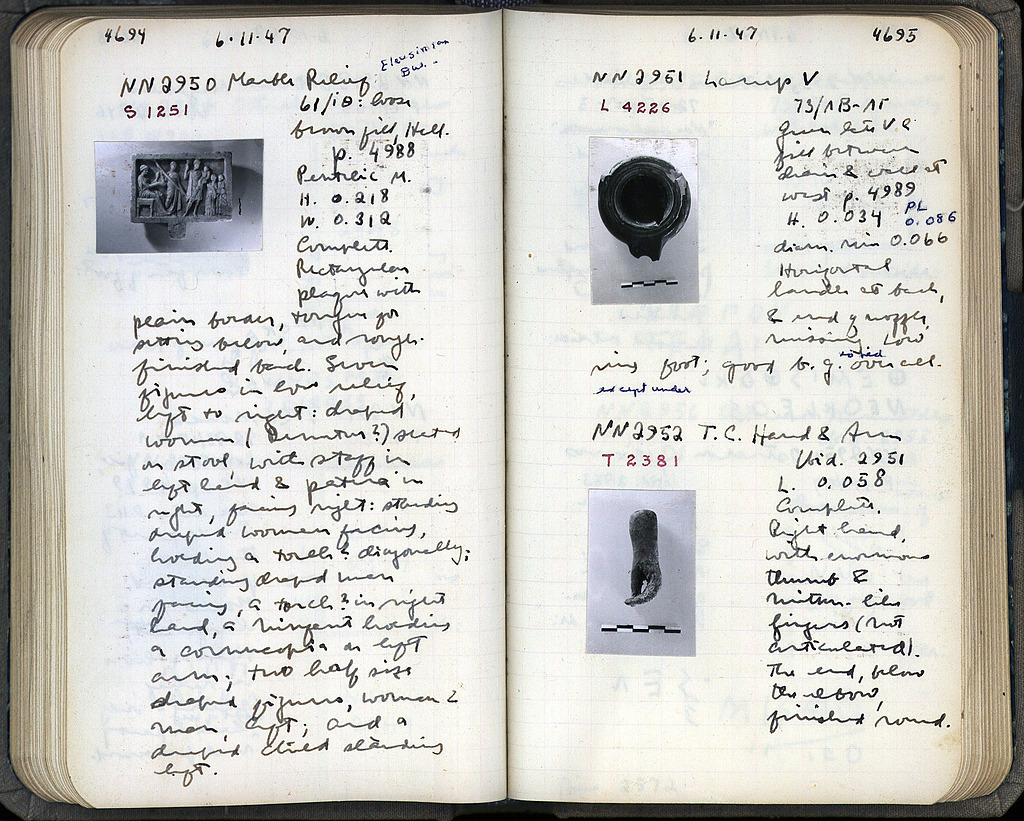 4694
6·11·47
NN2950 Marble Relief
Eleusinian
S 1251
61/ : loose
brown fill, Hell.
p. 4988
Pentelic M.
H. 0.218
W. 0.312
Complete.
Rectangular
plaque with
plain border, tongue for
setting below, and rough-
finished back. Seven
figures in low relief,
left to right: draped
woman (Demeter?) seated
on stool, with staff in
left hand & patera in
right, facing right: standing
draped woman facing,
holding a torch? diagonally;
standing draped man
facing, a torch? in right
hand, a holding
a cornucopia on left
arm; two half size
draped figures, woman &
man, left; and a
draped child standing
left.
6.11.47
4695
NN2951 Lamp V
L 4226
73/ΙΒ-ΙΕ
Green late V c
fill between
drain & wall at
west p. 4989
H. 0.034
PL
0.086
diam. rim 0.066
Horizontal
handle at back,
& end of nozzle,
missing. Low
ring foot; good b.g. overall.
except under
NN2952 T.C. Hand & Arm
T 2381
Ibid. 2951
L. 0.058
Complete.
Right hand,
with enormous
thumb &
mitten-like
fingers (not
articulated).
The end, below
the elbow,
finished round.